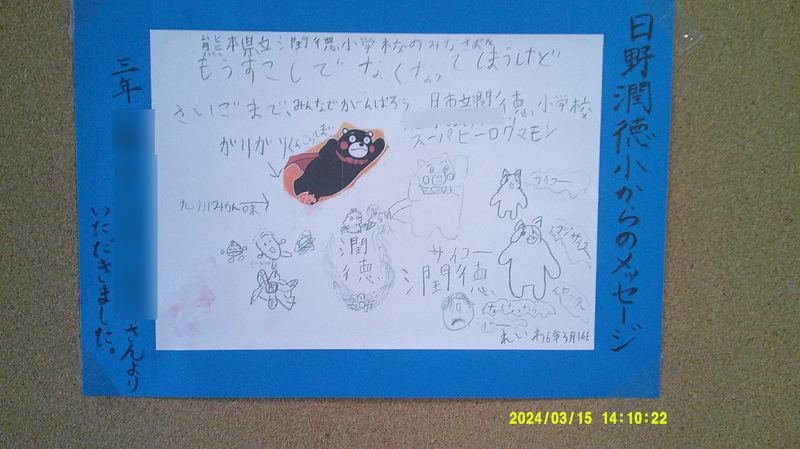 日野潤徳小からのメッセージ
熊本県立潤徳小学校のみなさまへ
もうすこしでなくなってしまうけど
さいごまで、みんなでがんばろう 日市立潤徳小学校
スーパーヒーロクマモン
がりがりくんこらぼ
九州みかん味
サイコー
潤徳
サイコー
潤徳
イヤッター
れいわ6年3月14日
三年
さんより
いただきました。
2024/03/15 14:10:22